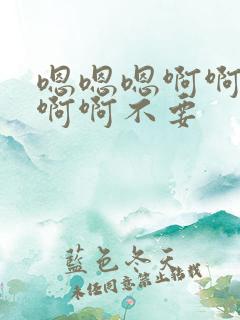 嗯嗯嗯啊啊
啊啊不要
蓝色冬天
未经同意禁止转载